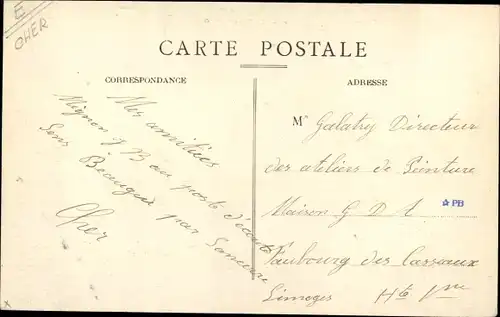 E
CHER
CARTE POSTALE
CORRESPONDANCE
ADRESSE
Mes amitiés
Mignon J B au poste d'écoute
Sens Beaujeu par Sancerre
Cher
Mr Galatry Directeur
des ateliers de Peinture
Maison G D A
Faubourg des Casseaux
Limoges Hte Vne
☆PB